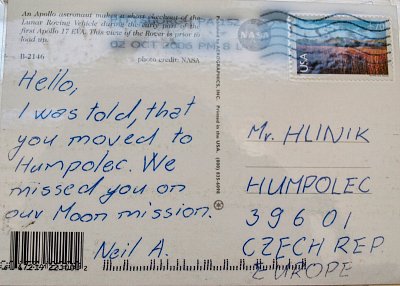 An Apollo astronaut makes a short checkout of the
Lunar Roving Vehicle during the early part of the
first Apollo 17 EVA. This view of the Rover is prior to
load up.
B-2146
photo credit: NASA
02 OCT 2006 PM 8 L
NASA
USA
Printed in the USA. (800) 855-6098
Hello,
I was told, that
you moved to
Humpolec. We
missed you on
our Moon mission.
Neil A.
Mr. HLINIK
HUMPOLEC
396 01
CZECH REP.
EUROPE